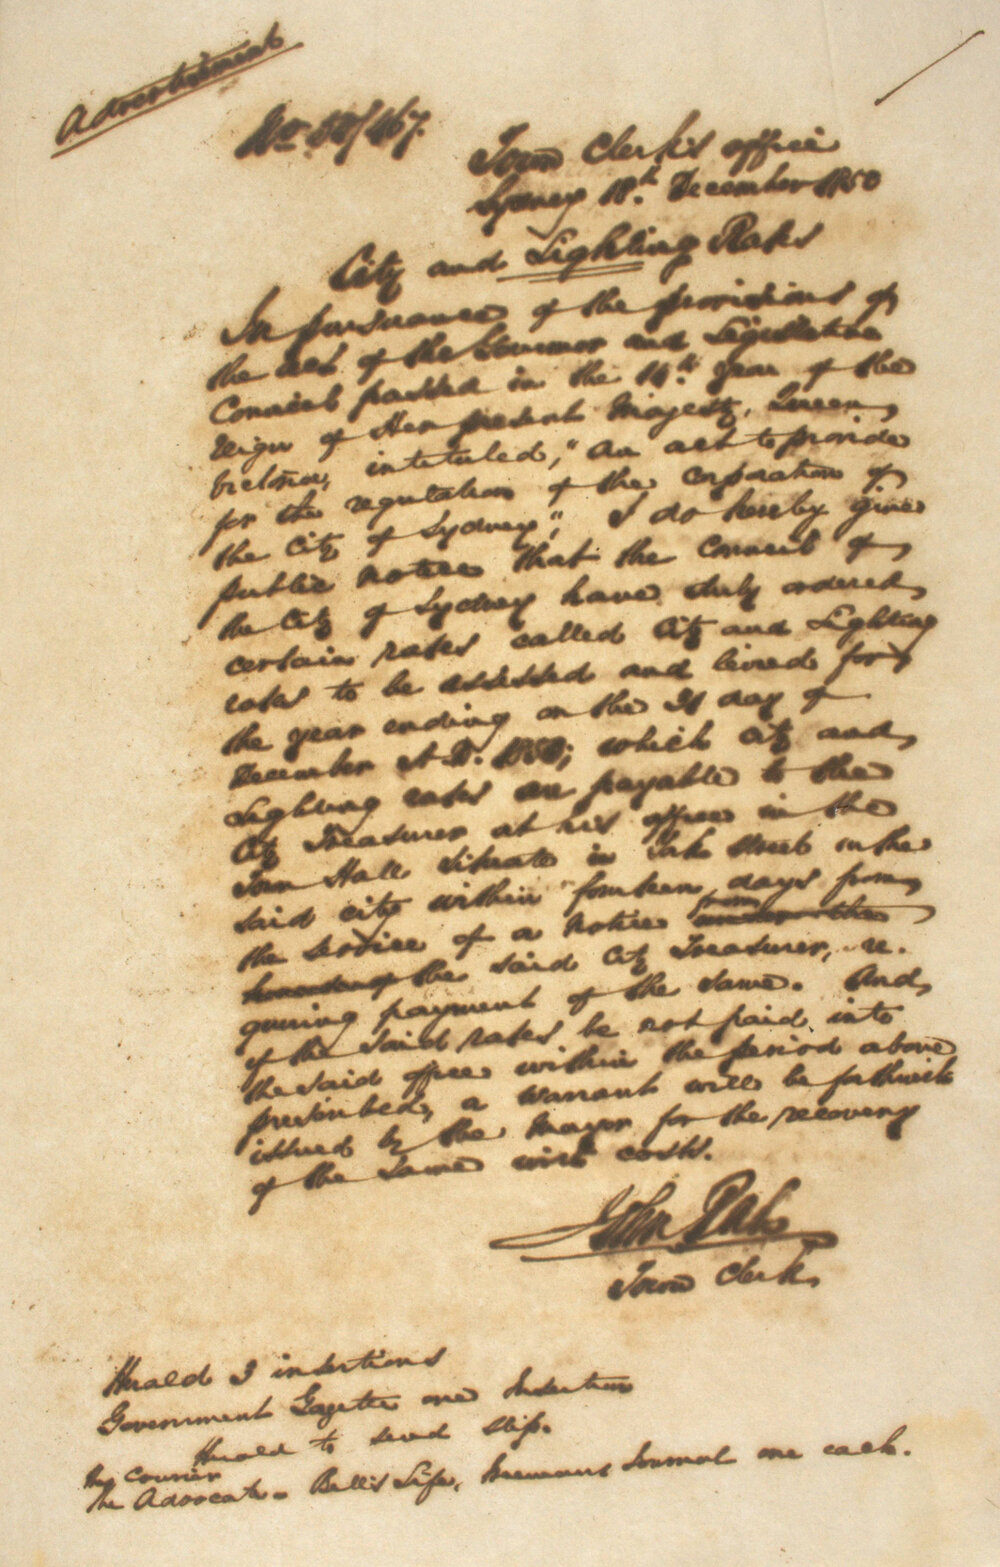 Advertisement
No. 50/467.
Town Clerk's office
Sydney 18.th December 1850
City and Lighting Rates
In pursuance of the provisions of
the act of the Governor and Legislative
Council passed in the 14.th year of the
reign of Her present Majesty, Queen
Victoria, intituled, "An act to provide
for the regulation of the corporation of
the City of Sydney", I do hereby give
public notice that the Council of
the City of Sydney have duly ordered
certain rates called City and Lighting
rates to be assessed and levied for
the year ending on the 31 day of
December A.D. 1850; which City and
Lighting rates are payable to the
City Treasurer at his office in the
Town Hall situate in York Street in the
said city within fourteen days from
the service of a notice from under the
the said City Treasurer, re-
quiring payment of the same. And,
if the said rates be not paid into
the said office within the period above
prescribed, a warrant will be forthwith
issued by the Mayor for the recovery
of the same with costs.
John Rae
Town Clerk,
Herald 3 insertions
Government Gazette one Insertion
Herald to send slip.
The Courier
The Advocate - Bell's Life, Freemans Journal one each.